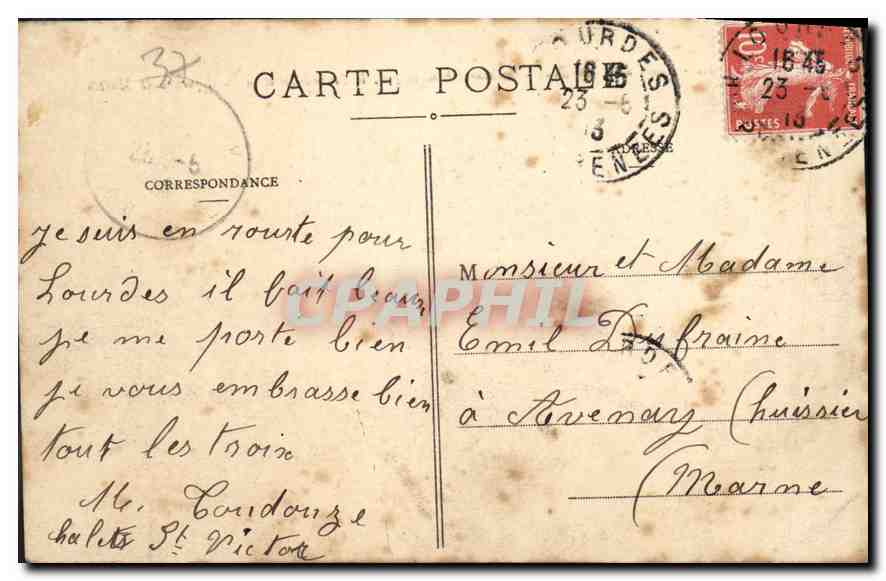 37
CARTE POSTALE
CORRESPONDANCE
ADRESSE
LOURDES
16 45
23 -6
13
PYRENEES
10
POSTES
LOURDES
16 45
23 -6
13
je suis en rourte pour
Lourdes il fait beaux
je me porte bien
je vous embrasse bien
tout les troix
M. Toudouze
halets St Victor
Monsieur et Madame
Emil Dufraine
à Avenay (huissier
(Marne
CPAPHIL